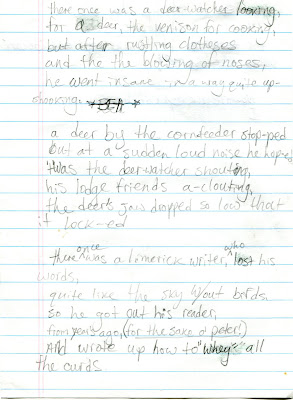 there once was a deer watcher looking,
for a deer, the venison for cooking,
but after rustling clotheses
and the the blowing of noses,
he went insane in a way quite up-
shooking.
a deer by the corn feeder stop-ped
But at a sudden loud noise he hop-ed
'twas the deer watcher shouting,
his lodge friends a-clouting,
the deer's jaw dropped so low that
it lock-ed
there once was a limerick writer, who lost his
words,
quite like the sky w/out birds,
so he got out his reader,
from years ago, (for the sake o' peter!)
And wrote up how to "whey" all
the curds